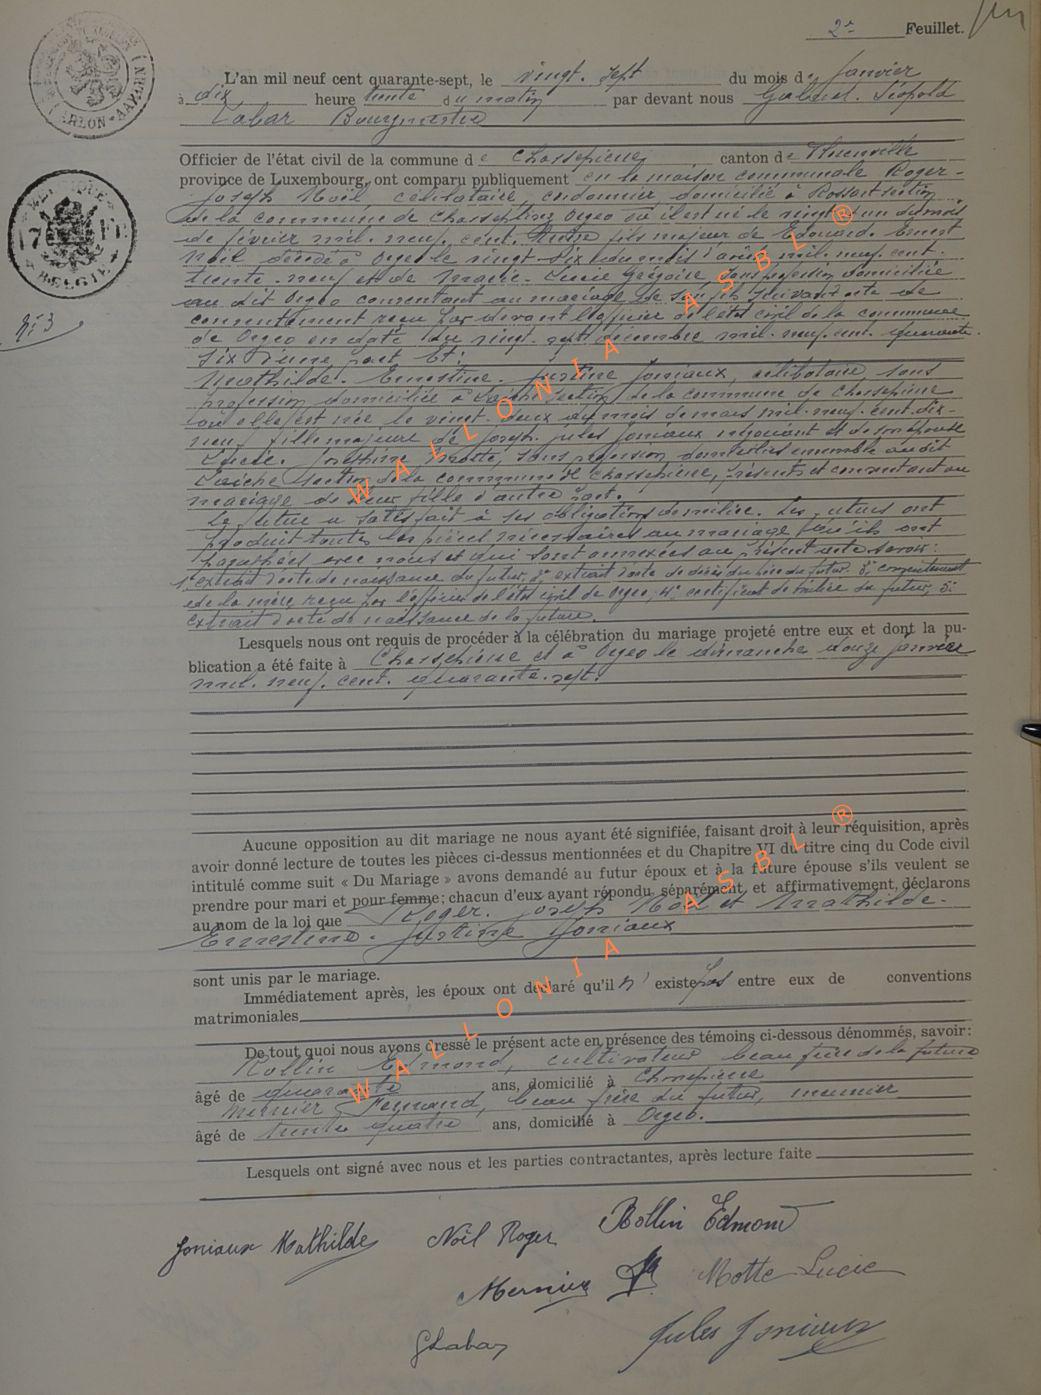 2e Feuillet.
L'an mil neuf cent quarante-sept, le vingt-sept du mois de janvier
à dix heure trente du matin par devant nous Gabriel-Léopold
Labar Bourgmestre
Officier de l'état civil de la commune de Chassepierre canton de Florenville
province de Luxembourg, ont comparu publiquement en la maison communale Roger-
Joseph Noël, célibataire, cordonnier domicilié à section
de la commune de Chassepierre Orgeo où il est né le vingt un du mois
de février mil-neuf-cent-treize fils majeur de Edouard-Ernest
Noël décédé à Orgeo le vingt-six du mois d' mil-neuf-cent-
trente-neuf et de Marie-Lucie Grégoire, sans profession domiciliée
au dit Orgeo consentant au mariage de son fils suivant acte de
consentement reçu par devant l'officier de l'état civil de la commune
de Orgeo en date du vingt-sept décembre mil-neuf-cent-quarante-
six d'une part Et:
Mathilde-Ernestine-Justine Joniaux, célibataire sans
profession domiciliée à Laiche section de la commune de Chassepierre
où elle est née le vingt-deux du mois de mars mil-neuf-cent-dix-
neuf fille majeure de Joseph-Jules Joniaux négociant et de son épouse
Lucie-Joséphine Motte, sans profession domiciliés ensemble au dit
Laiche section de la commune de Chassepierre, présents et consentant au
mariage de leur fille d'autre part.
Le futur a satisfait à ses obligations de milice. Les futurs ont
produit toutes les pièces nécessaires au mariage qu'ils ont
paraphées avec nous et qui sont annexées au présent acte savoir:
1° extrait d'acte de naissance du futur, 2° extrait d'acte de décès du père du futur, 3° consentement
de la mère reçu par l'officier de l'état civil de Orgeo, 4° certificat de milice du futur, 5°
extrait d'acte de naissance de la future.
Lesquels nous ont requis de procéder à la célébration du mariage projeté entre eux et dont la pu-
blication a été faite à Chassepierre et à Orgeo le dimanche douze janvier
mil-neuf-cent-quarante-sept.
Aucune opposition au dit mariage ne nous ayant été signifiée, faisant droit à leur réquisition, après
avoir donné lecture de toutes les pièces ci-dessus mentionnées et du Chapitre VI du titre cinq du Code civil
intitulé comme suit « Du Mariage » avons demandé au futur époux et à la future épouse s'ils veulent se
prendre pour mari et pour femme; chacun d'eux ayant répondu séparément et affirmativement, déclarons
au nom de la loi que Roger-Joseph Noël et Mathilde-
Ernestine-Justine Joniaux
sont unis par le mariage.
Immédiatement après, les époux ont déclaré qu'il n'existe pas entre eux de conventions
matrimoniales
De tout quoi nous avons dressé le présent acte en présence des témoins ci-dessous dénommés, savoir:
Rollin Edmond, cultivateur beau frère de la future
âgé de quarante ans, domicilié à Chassepierre
Mernier Fernand, beau frère du futur, meunier
âgé de trente quatre ans, domicilié à Orgeo.
Lesquels ont signé avec nous et les parties contractantes, après lecture faite
Joniaux Mathilde Noël Roger Rollin Edmond
Mernier Motte Lucie
GLabar Jules Joniaux
WALLONIA ASBL ®
WALLONIA ASBL ®
BELGIQUE
BELGIE
ARLON-AARLEN